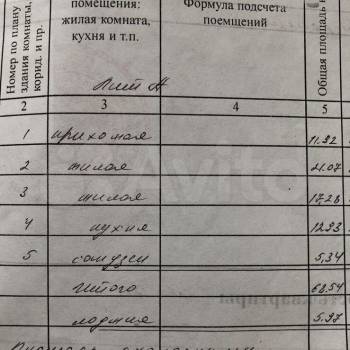 Номер по плану здания комнаты, корид. и пр.
помещения: жилая комната, кухня и т.п.
Формула подсчета поемщений
Общая площадь
Лит А
2 3 4 5
1 прихожая 11.92
2 жилая 21.07
3 жилая 17,28
4 кухня 12.93
5 санузел 5,34
Итого 68.54
лоджия 5.97
Avito